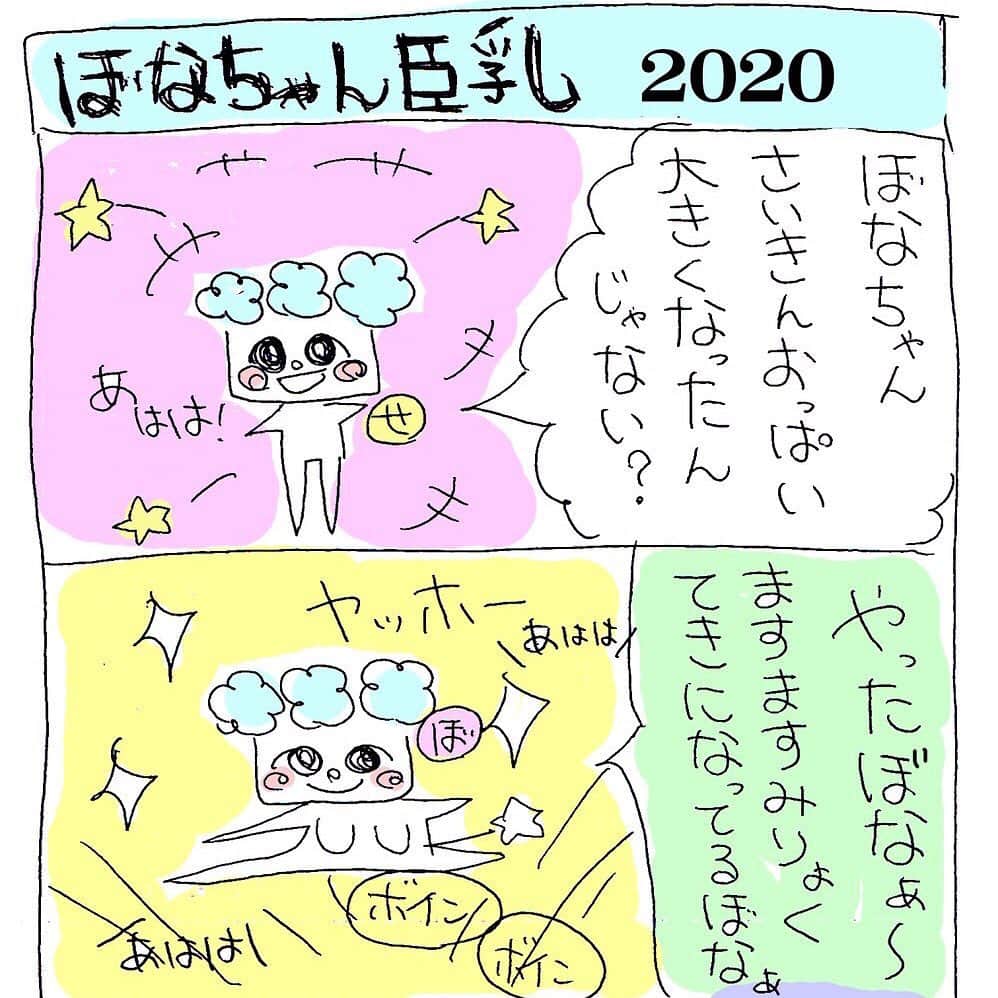 ぼなちゃん巨乳 2020
ぼなちゃん
さいきんおっぱい
大きくなったん
じゃない?
あははは!
せ
やったぼなぁ〜
ますますみりょく
てきになってるぼなぁ
ヤッホー
あははは
ぼ
ボイン
ボイン
あははは